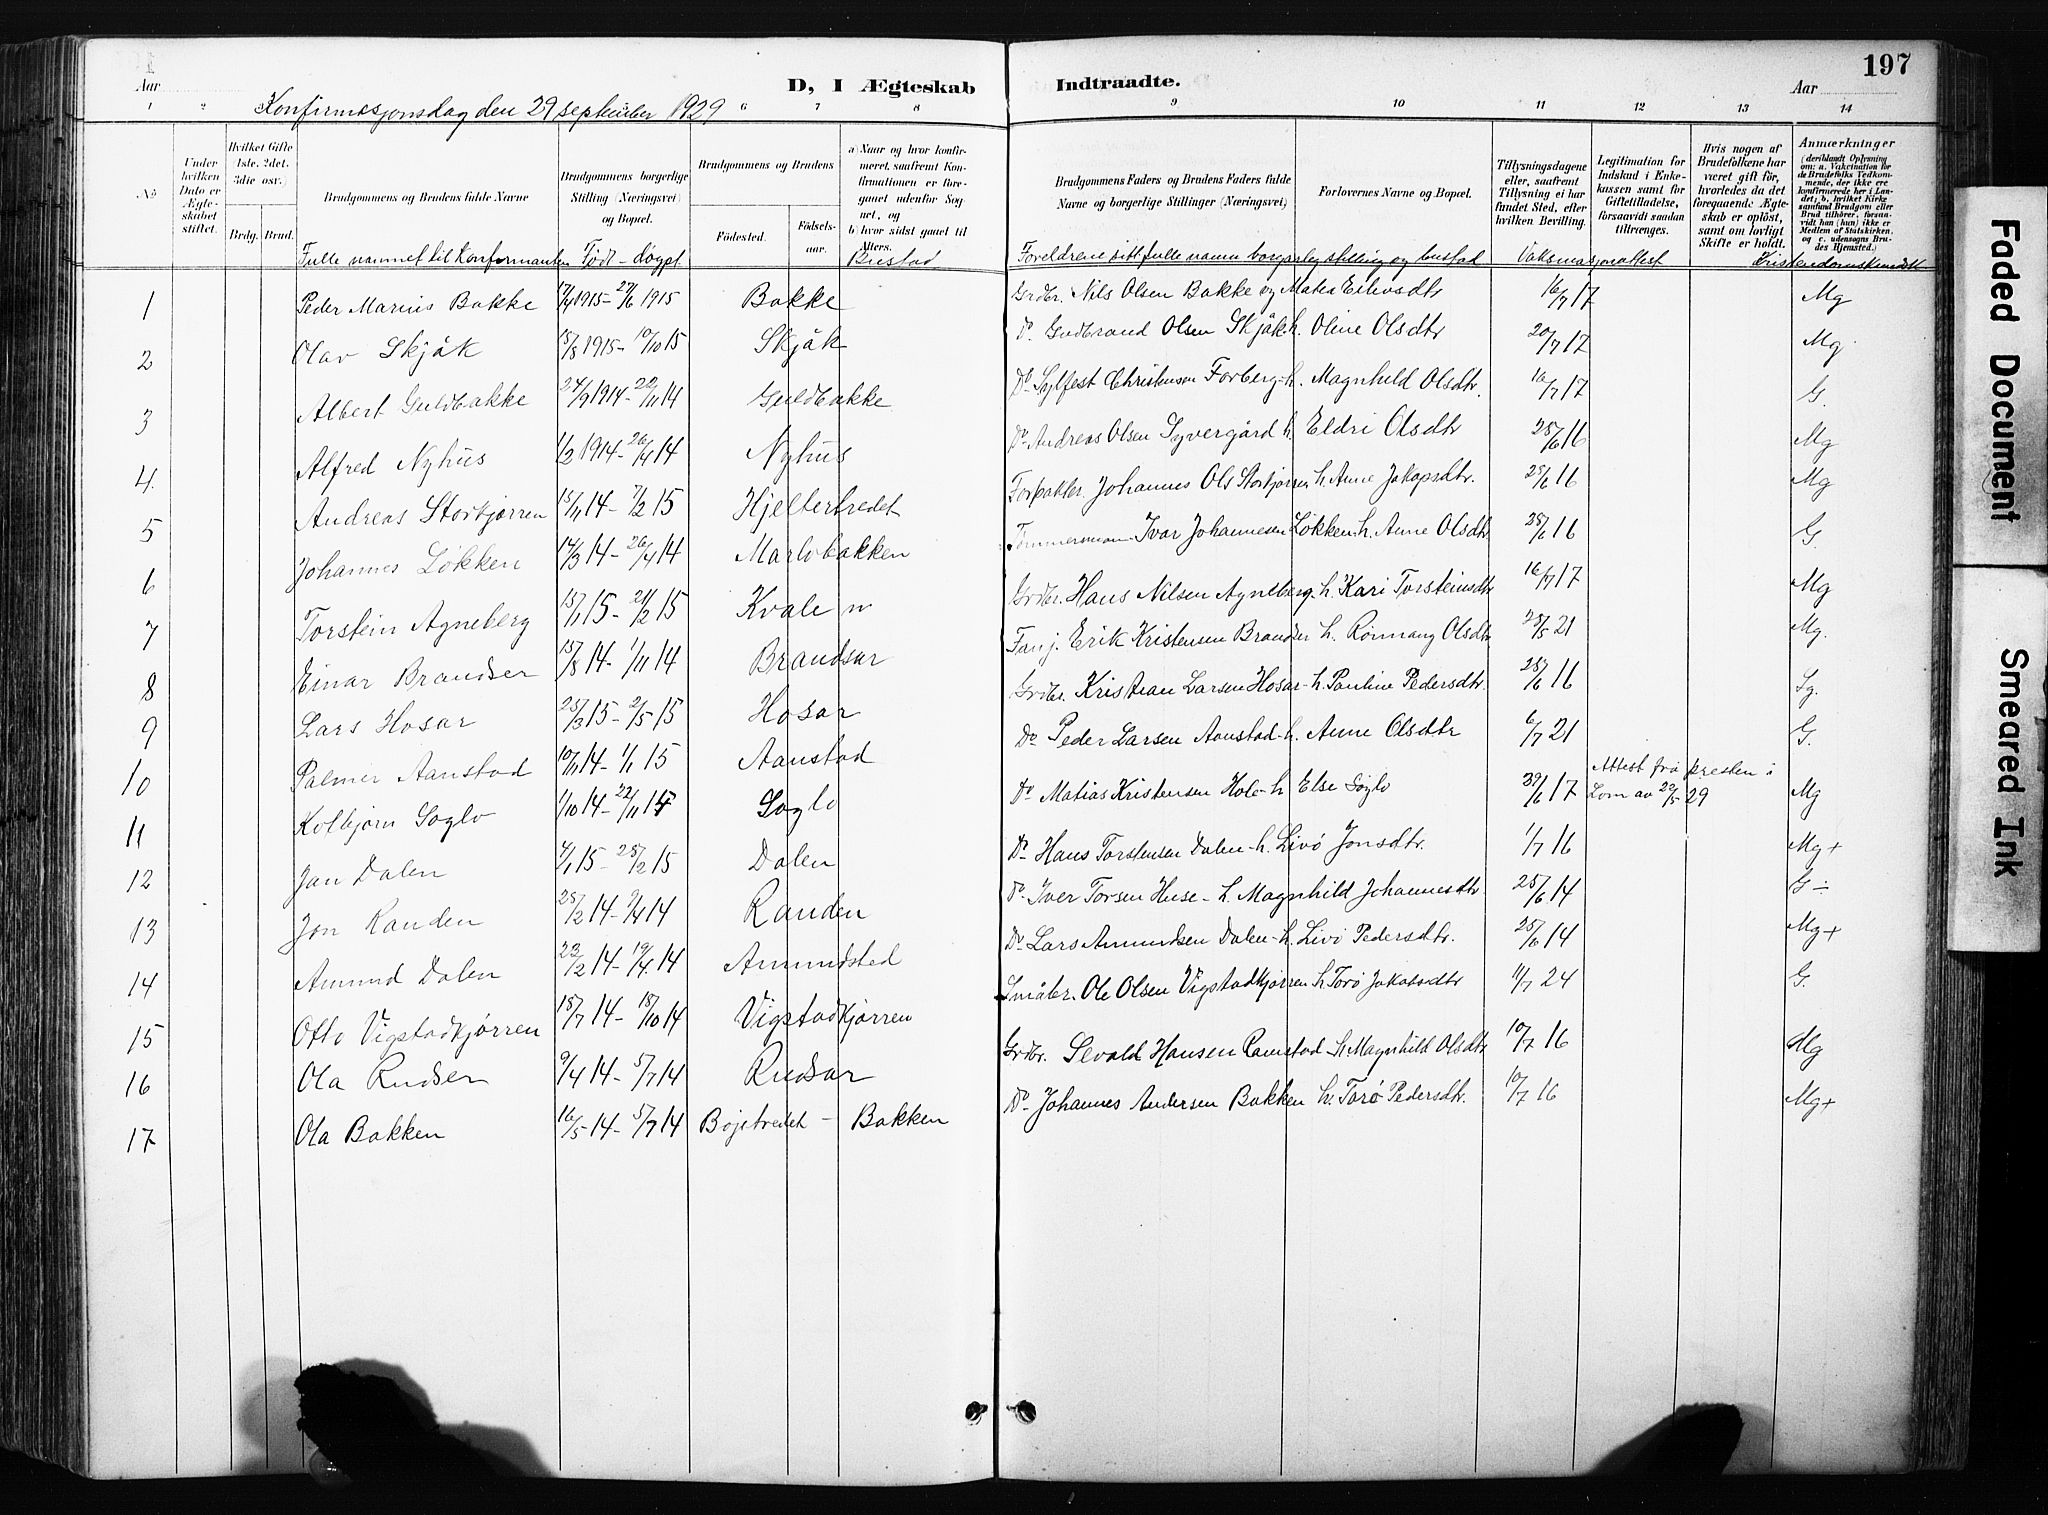 197
Aar
D, I Ægteskab Indtraadte.
Aar
1 2 6 7 8 9 10 11 12 13 14
Konfirmasjonsdag den 29 september 1929
No
Under hvilken Dato er Ægteskabet stiftet.
Hvilket Gifte (1ste, 2det, 3die osv.)
Brdg. Brud.
Brudgommens og Brudens fulde Navne
Brudgommens borgerlige Stilling (Næringsvei) og Bopæl.
Brudgommens og Brudens
Fødested.
Fødselsaar.
a) Naar og hvor konfirmeret, saafremt Konfirmationen er foregaaet udenfor Sognet, og
b) hvor sidst gaaet til Alters.
Brudgommens Faders og Brudens Faders fulde Navne og borgerlige Stillinger (Næringsvei)
Forlovernes Navne og Bopæl.
Tillysningsdagene eller, saafremt Tillysning ei har fundet Sted, efter hvilken Bevilling.
Legitimation for Indskud i Enkekassen samt for Giftetilladelse, forsaavidt saadan tiltrænges.
Hvis nogen af Brudefolkene har været gift før, hvorledes da det foregaaende Ægteskab er opløst, samt om lovligt Skifte er holdt.
Anmærkninger
(deriblandt Oplysning om: a. Vakcination for de Brudefolks Vedkommende, der ikke ere konfirmerede her i Landet; b. hvilket Kirkesamfund Brudgom eller Brud tilhører, forsavidt han (hun) ikke er Medlem af Statskirken, og c. udensogns Brudes Hjemsted.)
Fulle namnet til Konfirmanten Født - døypt Bustad Foreldrene sitt fulle namn borgarleg stilling og bustad Vaksinasjonattest Kristendomskunnsk
1 Peder Marius Bakke 17/4 1915 - 27/6 1915 Bakke Grdbr. Nils Olsen Bakke og Matea Eilivsdtr 16/7 17 Mg
2 Olav Skjåk 15/8 1915 - 10/10 15 Skjåk Do Gudbrand Olsen Skjåk h. Oline Olsdtr 20/7 17 Mg
3 Albert Guldbakke 24/9 1914 - 22/11 14 Guldbakke Do Sylfest Christensen Forberg h. Magnhild Olsdtr. 16/7 17 G.
4. Alfred Nyhus 1/2 1914 - 26/4 14 Nyhus Do Andreas Olsen Syvergård h. Eldri Olsdtr 25/6 16 Mg
5 Andreas Storkjørren 15/11 14 - 7/2 15 Hjeltertredet Forpakter Johannes Ols Storkjørren h Anne Jakopsdtr. 25/6 16 Mg
6 Johannes Løkken 14/3 14 - 26/4 14 Marlobakken Tømmermann Ivar Johannesen Løkken h. Anne Olsdtr 25/6 16 G.
7 Torstein Agneberg 15/1 15 - 21/2 15 Kvale n Grdbr. Hans Nilsen Agneberg h. Kari Torsteinsdtr 16/7 17 Mg
8 Einar Brandser 15/8 14 - 1/11 14 Brandsar Fanj. Erik Kristensen Brandser h. Rønnaug Olsdtr 25/5 21 Mg.
9 Lars Hosar 25/3 15 - 2/5 15 Hosar Grdbr. Kristian Larsen Hosar - h. Pauline Pedersdtr. 25/6 16 Sg.
10 Palmer Aanstad 10/11 14 - 1/1 15 Aanstad Do Peder Larsen Aanstad - h. Anne Olsdtr 6/7 21 G.
11 Kolbjørn Søglo 1/10 14 - 22/11 14 Søglo Do Matias Kristensen Hole - h Else Søglo 30/6 17 Attest frå presten i Lom av 22/5 29 Mg
12 Jan Dalen 4/1 15 - 28/2 15 Dalen Do Hans Torstensen Dalen - h. Livø Jonsdtr. 1/7 16 Mg+
13 Jon Randen 25/2 14 - 9/4 14 Randen Do Iver Torsen Huse - h. Magnhild Johannesdtr. 25/6 14 G-
14 Amund Dalen 22/2 14 - 19/4 14 Amundsted Do Lars Amundsen Dalen - h. Livø Pedersdtr. 25/6 14 Mg+
15 Otto Vigstadkjørren 18/7 14 - 18/10 14 Vigstadkjørren Småbr. Ole Olsen Vigstadkjørren h Torø Jakobsdtr 11/7 24 G.
16 Ola Rudser 9/4 14 - 5/7 14 Rudsar Grdbr. Sevald Hansen Ramstad h. Magnhild Olsdtr 10/7 16 Mg
17 Ola Bakken 16/5 14 - 5/7 14 Bøjetredet - Bakken Do Johannes Andersen Bakken h. Torø Pedersdtr. 10/7 16 Mg+
Faded Document
Smeared Ink